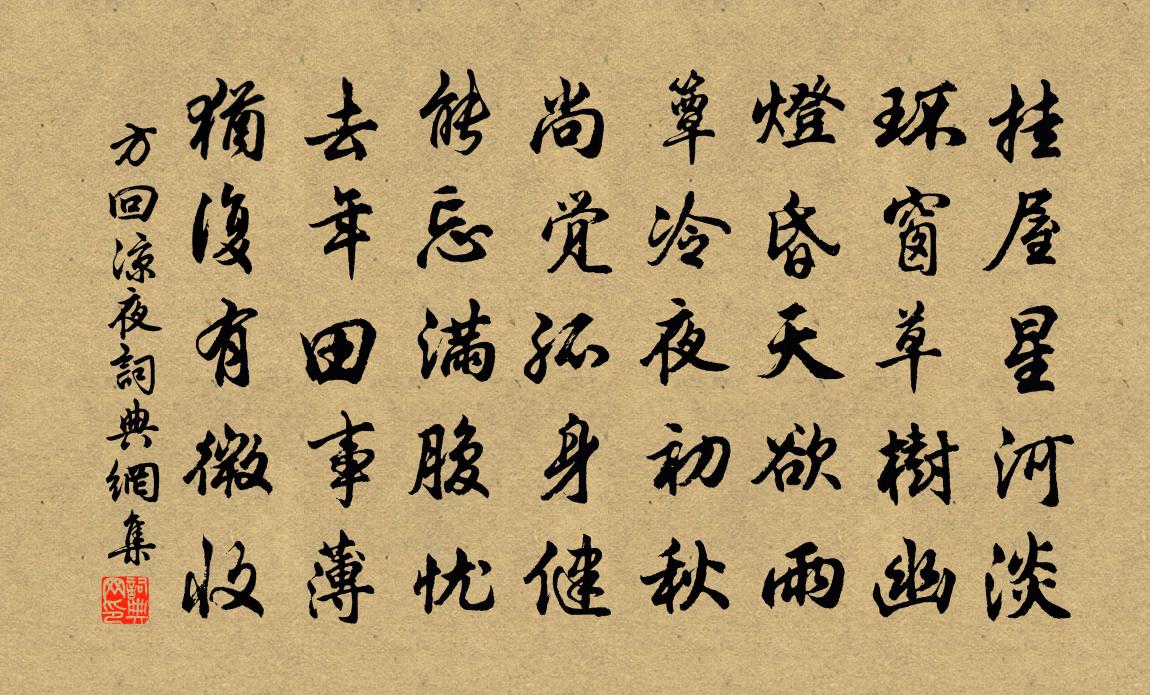 挂屋星河淡
环窗草樹幽
燈昏天欲雨
簟冷夜初秋
尚觉孤身健
能忘满腹忧
去年田事薄
猶復有微收
方回涼夜詞典網集
詞典网印